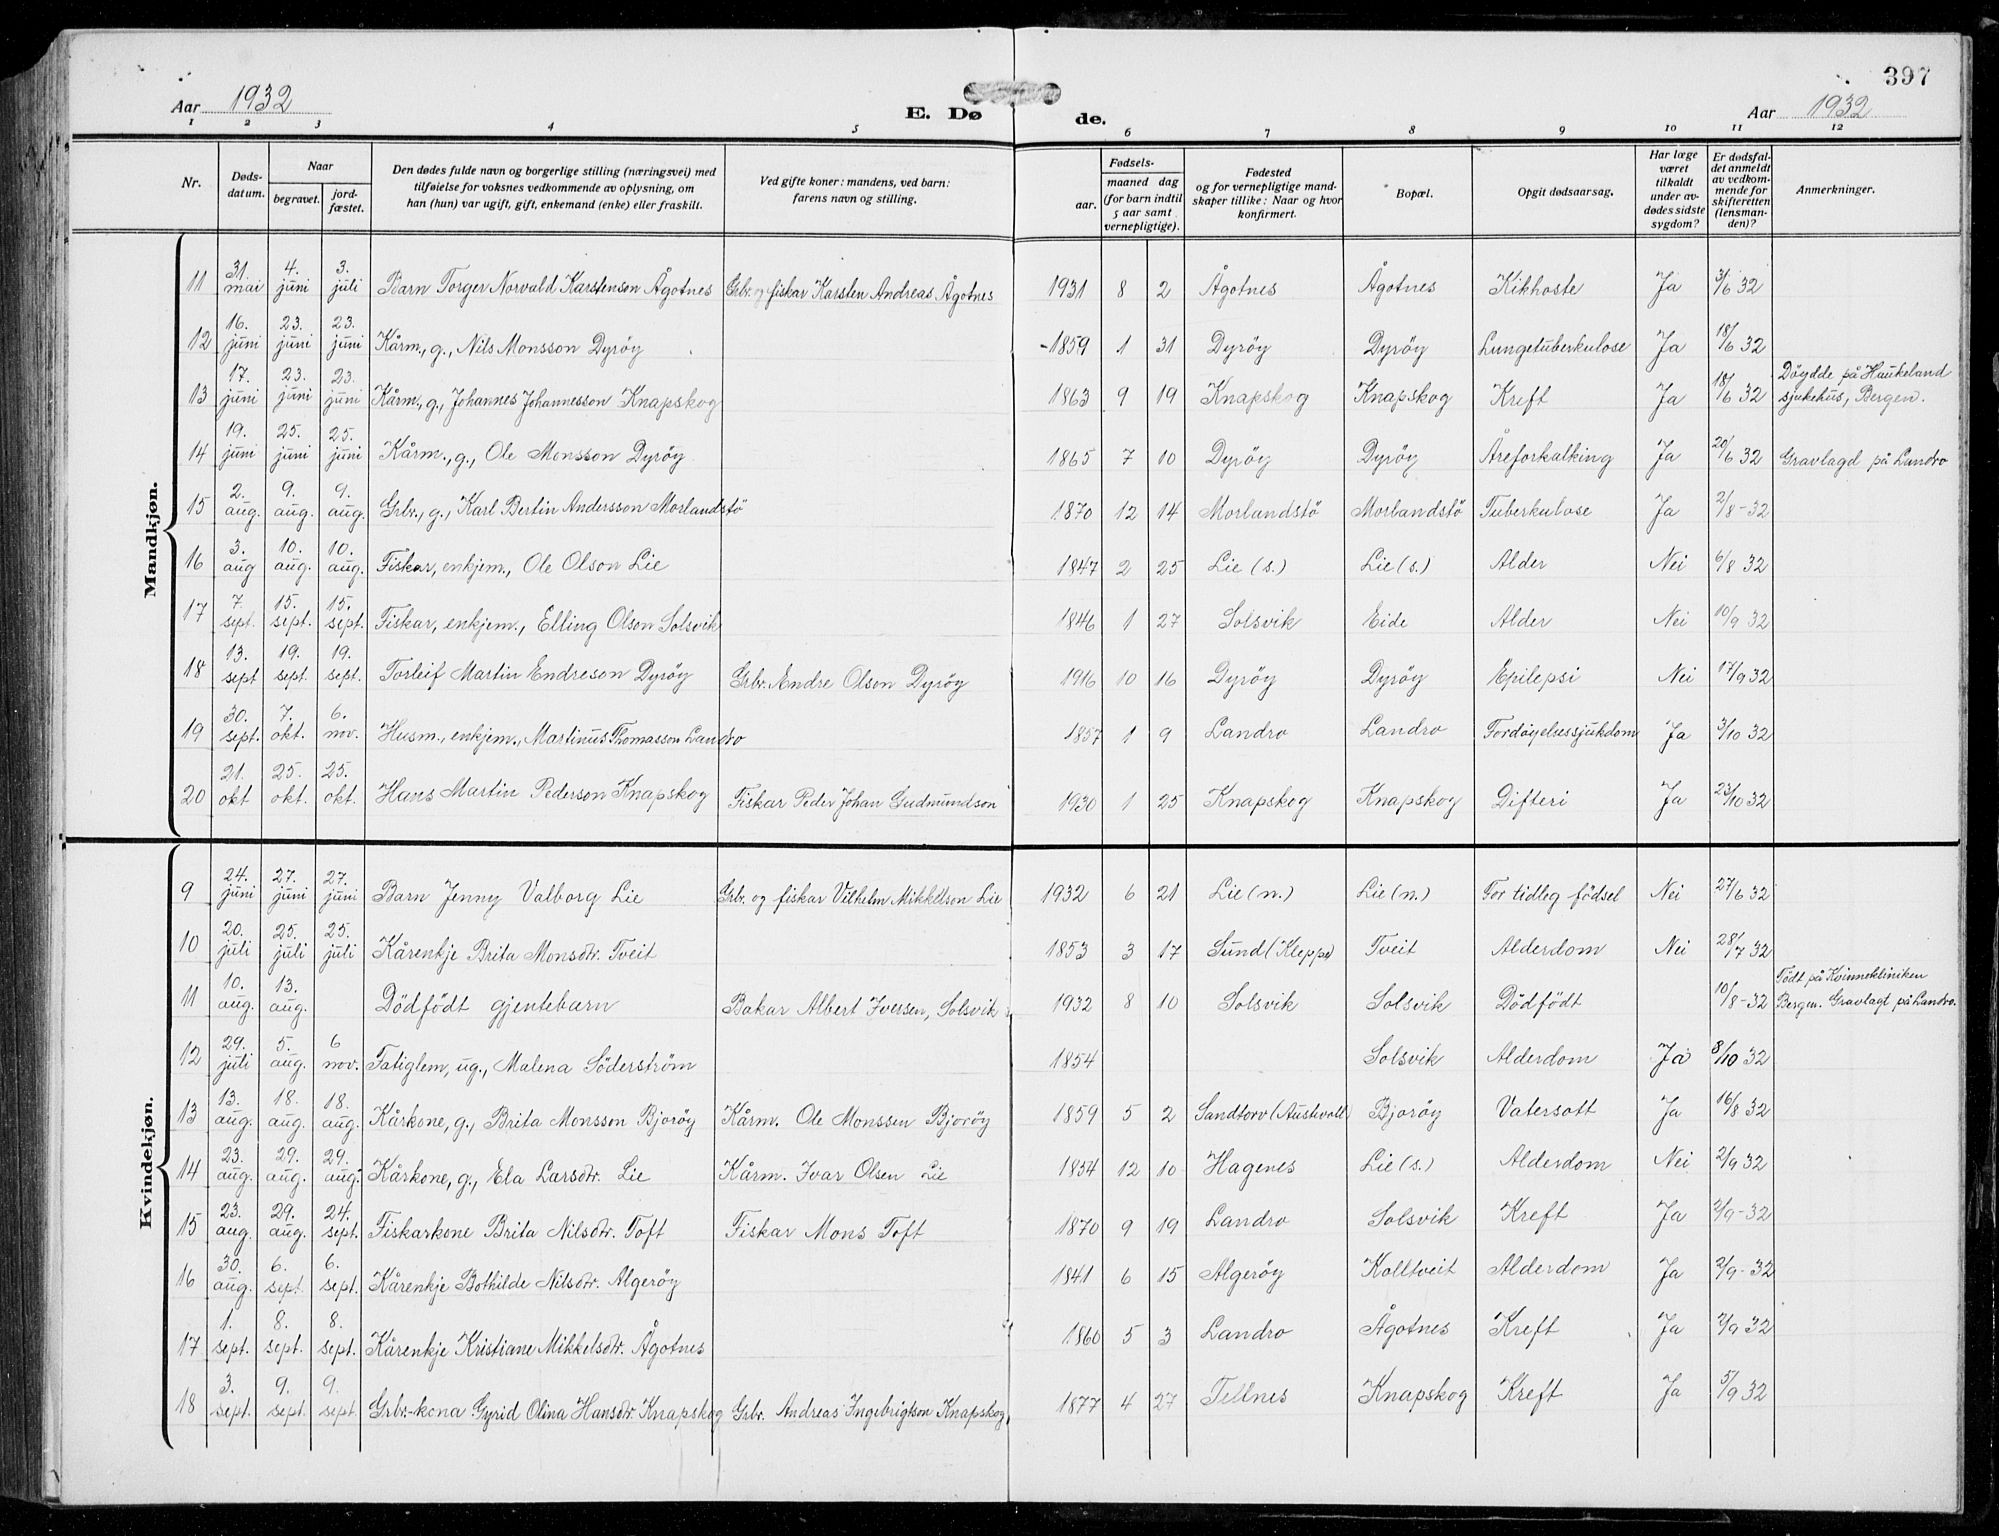 397
Aar 1932 E. Døde. Aar 1932
1 2 3 4 5 6 7 8 9 10 11 12
Nr. Døds-datum. Naar begravet. jord-fæstet. Den dødes fulde navn og borgerlige stilling (næringsvei) med tilføielse for voksnes vedkommende av oplysning, om han (hun) var ugift, gift, enkemand (enke) eller fraskilt. Ved gifte koner: mandens, ved barn: farens navn og stilling. Fødsels- aar. maaned dag (for barn indtil 5 aar samt vernepligtige). Fødested og for vernepligtige mandskaper tillike: Naar og hvor konfirmert. Bopæl. Opgit dødsaarsag. Har læge været tilkaldt under avdødes sidste sygdom? Er dødsfaldet anmeldt av vedkommende for skifteretten (lensmanden)? Anmerkninger.
Mandkjøn.
11 31. mai 4. juni 3. juli Barn Torger Norvald Karstenson Ågotnes Grbr. og fiskar Karsten Andreas Ågotnes 1931 8 2 Ågotnes Ågotnes Kikhoste Ja 3/6 32
12 16. juni 23. juni 23. juni Kårm., g., Nils Monsson Dyröy 1859 1 31 Dyröy Dyröy Lungetuberkulose Ja 18/6 32
13 17. juni 23. juni 23. juni Kårm., g., Johannes Johannesson Knapskog 1863 9 19 Knapskog Knapskog Kreft Ja 18/6 32 Döydde på Haukeland sjukehus, Bergen.
14 19. juni 25. juni 25. juni Kårm., g., Ole Monsson Dyröy 1865 7 10 Dyröy Dyröy Åreforkalking Ja 20/6 32 Gravlagd på Landro
15 2. aug. 9. aug. 9. aug. Grbr., g., Karl Bertin Andersson Morlandstö 1870 12 14 Morlandstö Morlandstö Tuberkulose Ja 2/8-32
16 3. aug 10. aug. 10. aug. Fiskar, enkjem., Ole Olson Lie 1847 2 25 Lie (s.) Lie (s.) Alder Nei 6/8 32
17 7. sept. 15. sept. 15. sept. Fiskar, enkjem., Elling Olson Solsvik 1846 1 27 Solsvik Eide Alder Nei 10/9 32
18 13. sept 19. sept. 19. sept. Torleif Martin Endreson Dyröy Grbr. Endre Olson Dyröy 1916 10 16 Dyröy Dyröy Epilepsi Nei 17/9 32
19 30. sept. 7. okt. 6. nov. Husm., enkjem., Martinus Thomasson Landro 1857 1 9 Landro Landro Fordöyelsessjukdom Ja 3/10 32
20 21. okt 25. okt. 25. okt. Hans Martin Pederson Knapskog Fiskar Peder Johan Gudmundson 1930 1 25 Knapskog Knapskog Difteri Ja 23/10 32
Kvindekjøn.
9 24. juni 27. juni 27. juni Barn Jenny Valborg Lie Grbr. og fiskar Vilhelm Mikkelson Lie 1932 6 21 Lie (n.) Lie (n.) For tidleg födsel Nei 27/6 32
10 20. juli 25. juli 25. juli Kårenkje Brita Monsdtr. Tveit 1853 3 17 Sund (Kleppe) Tveit Alderdom Nei 28/7 32
11 10. aug. 13. aug. Dödfödt gjentebarn Bakar Albert Iversen, Solsvik 1932 8 10 Solsvik Solsvik Dödfödt 10/8-32 Födt på Kvinneklinikken Bergen. Gravlagt på Landro.
12 29. juli 5. aug. 6 nov. Fatiglem, ug., Malena Söderström 1854 Solsvik Alderdom Ja 8/10 32
13 13. aug. 18. aug. 18. aug. Kårkone, g., Brita Monsson Bjoröy Kårm. Ole Monssen Bjoröy 1859 5 2 Sandtorv (Austevoll) Bjoröy Vatersott Ja 16/8 32
14 23. aug. 29. aug. 29. aug. Kårkone, g., Ela Larsdtr. Lie Kårm. Ivar Olsen Lie 1854 12 10 Hagenes Lie (s.) Alderdom Nei 2/9 32
15 23. aug. 29. aug. 24. sept. Fiskarkone Brita Nilsdtr. Toft Fiskar Mons Toft 1870 9 19 Landro Solsvik Kreft Ja 2/9-32
16 30. aug. 6. sept. 6. sept. Kårenkje Bothilde Nilsdtr. Algeröy 1841 6 15 Algeröy Kolltveit Alderdom Ja 2/9-32
17 1. sept. 8. sept. 8. sept. Kårenkje Kristiane Mikkelsdtr. Ågotnes 1860 5 3 Landro Ågotnes Kreft Ja 2/9 32
18 3. sept. 9. sept. 9. sept Grbr-kona Gyrid Olina Hansdtr. Knapskog Grbr. Andreas Ingebrigtson Knapskog 1877 4 27 Tellnes Knapskog Kreft Ja 5/9 32